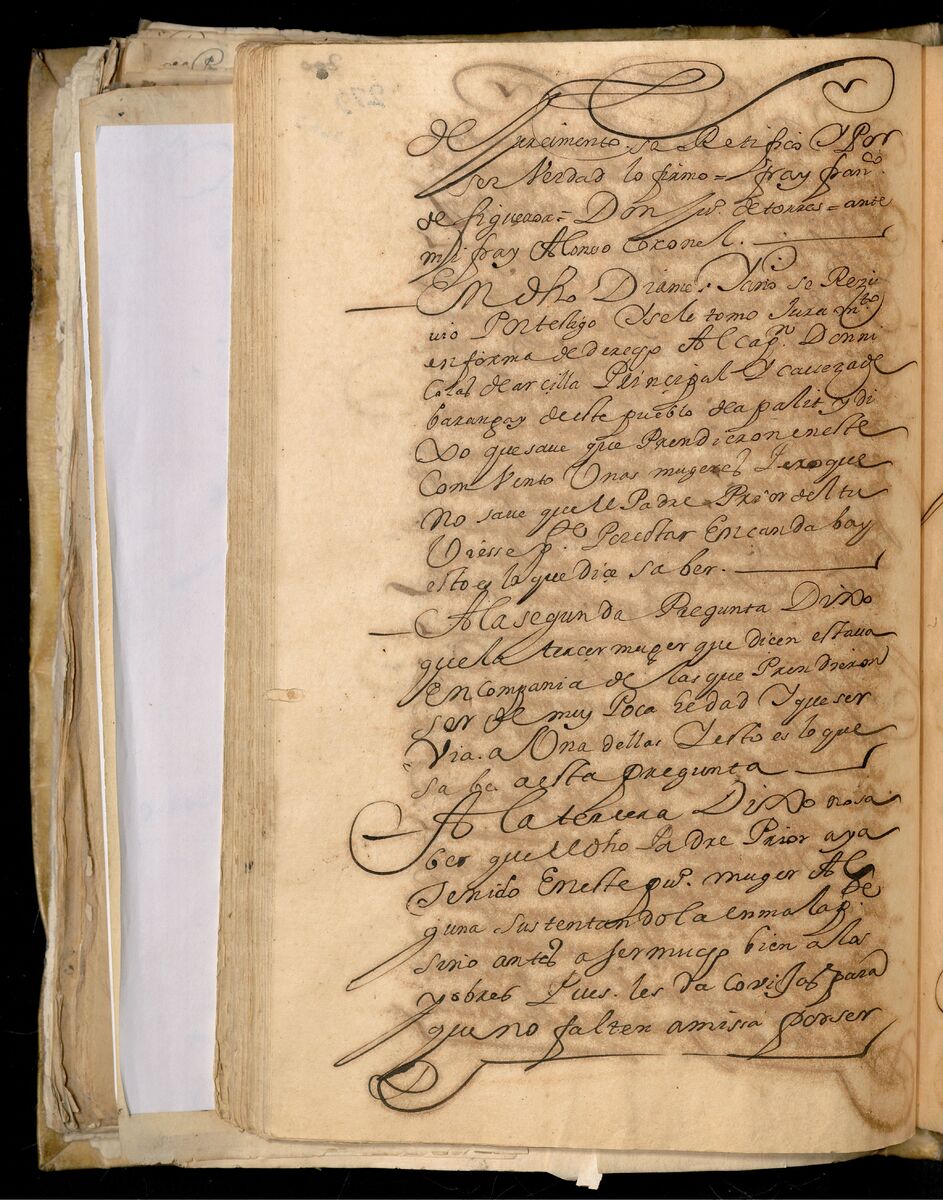 del Juracimento. se Retifico Y Por
ser Verdad lo firmo = fray fran.co
de figueroa = Don Ju.o de torres = ante
mi fray Alonso Coronel.
En dho Dia mes. Y año se Reziu
uio Por testigo Y se le tomo Jura m.to
en forma de derecho Al cap.n Don ni
Colas de arcilla Principal Y cauezade
barangay de este pueblo de apalit y di
xo que saue que Prendieron en este
Comvento Unas mugeres Pero que
No saue que ell Padre Prior del tu
Viesse p.te Por estar En candabay
esto es lo que dice saber.
A la segunda Pregunta Dixo
que la tercer muger que dicen estaua
En Compania de las que Prendieron
ser de muy Poca hedad Y que ser
via. a Una dellas Y esto es lo que
sabe a esta pregunta
A la tercera Dixo no sa
ber que ell dho Padre Prior aya
Tenido En este pu.o muger Al
guna sustentandola en mala p.te
sino antes a ser mucho bien a los
pobres Pues. les da covijas para
que no falten a missa por ser